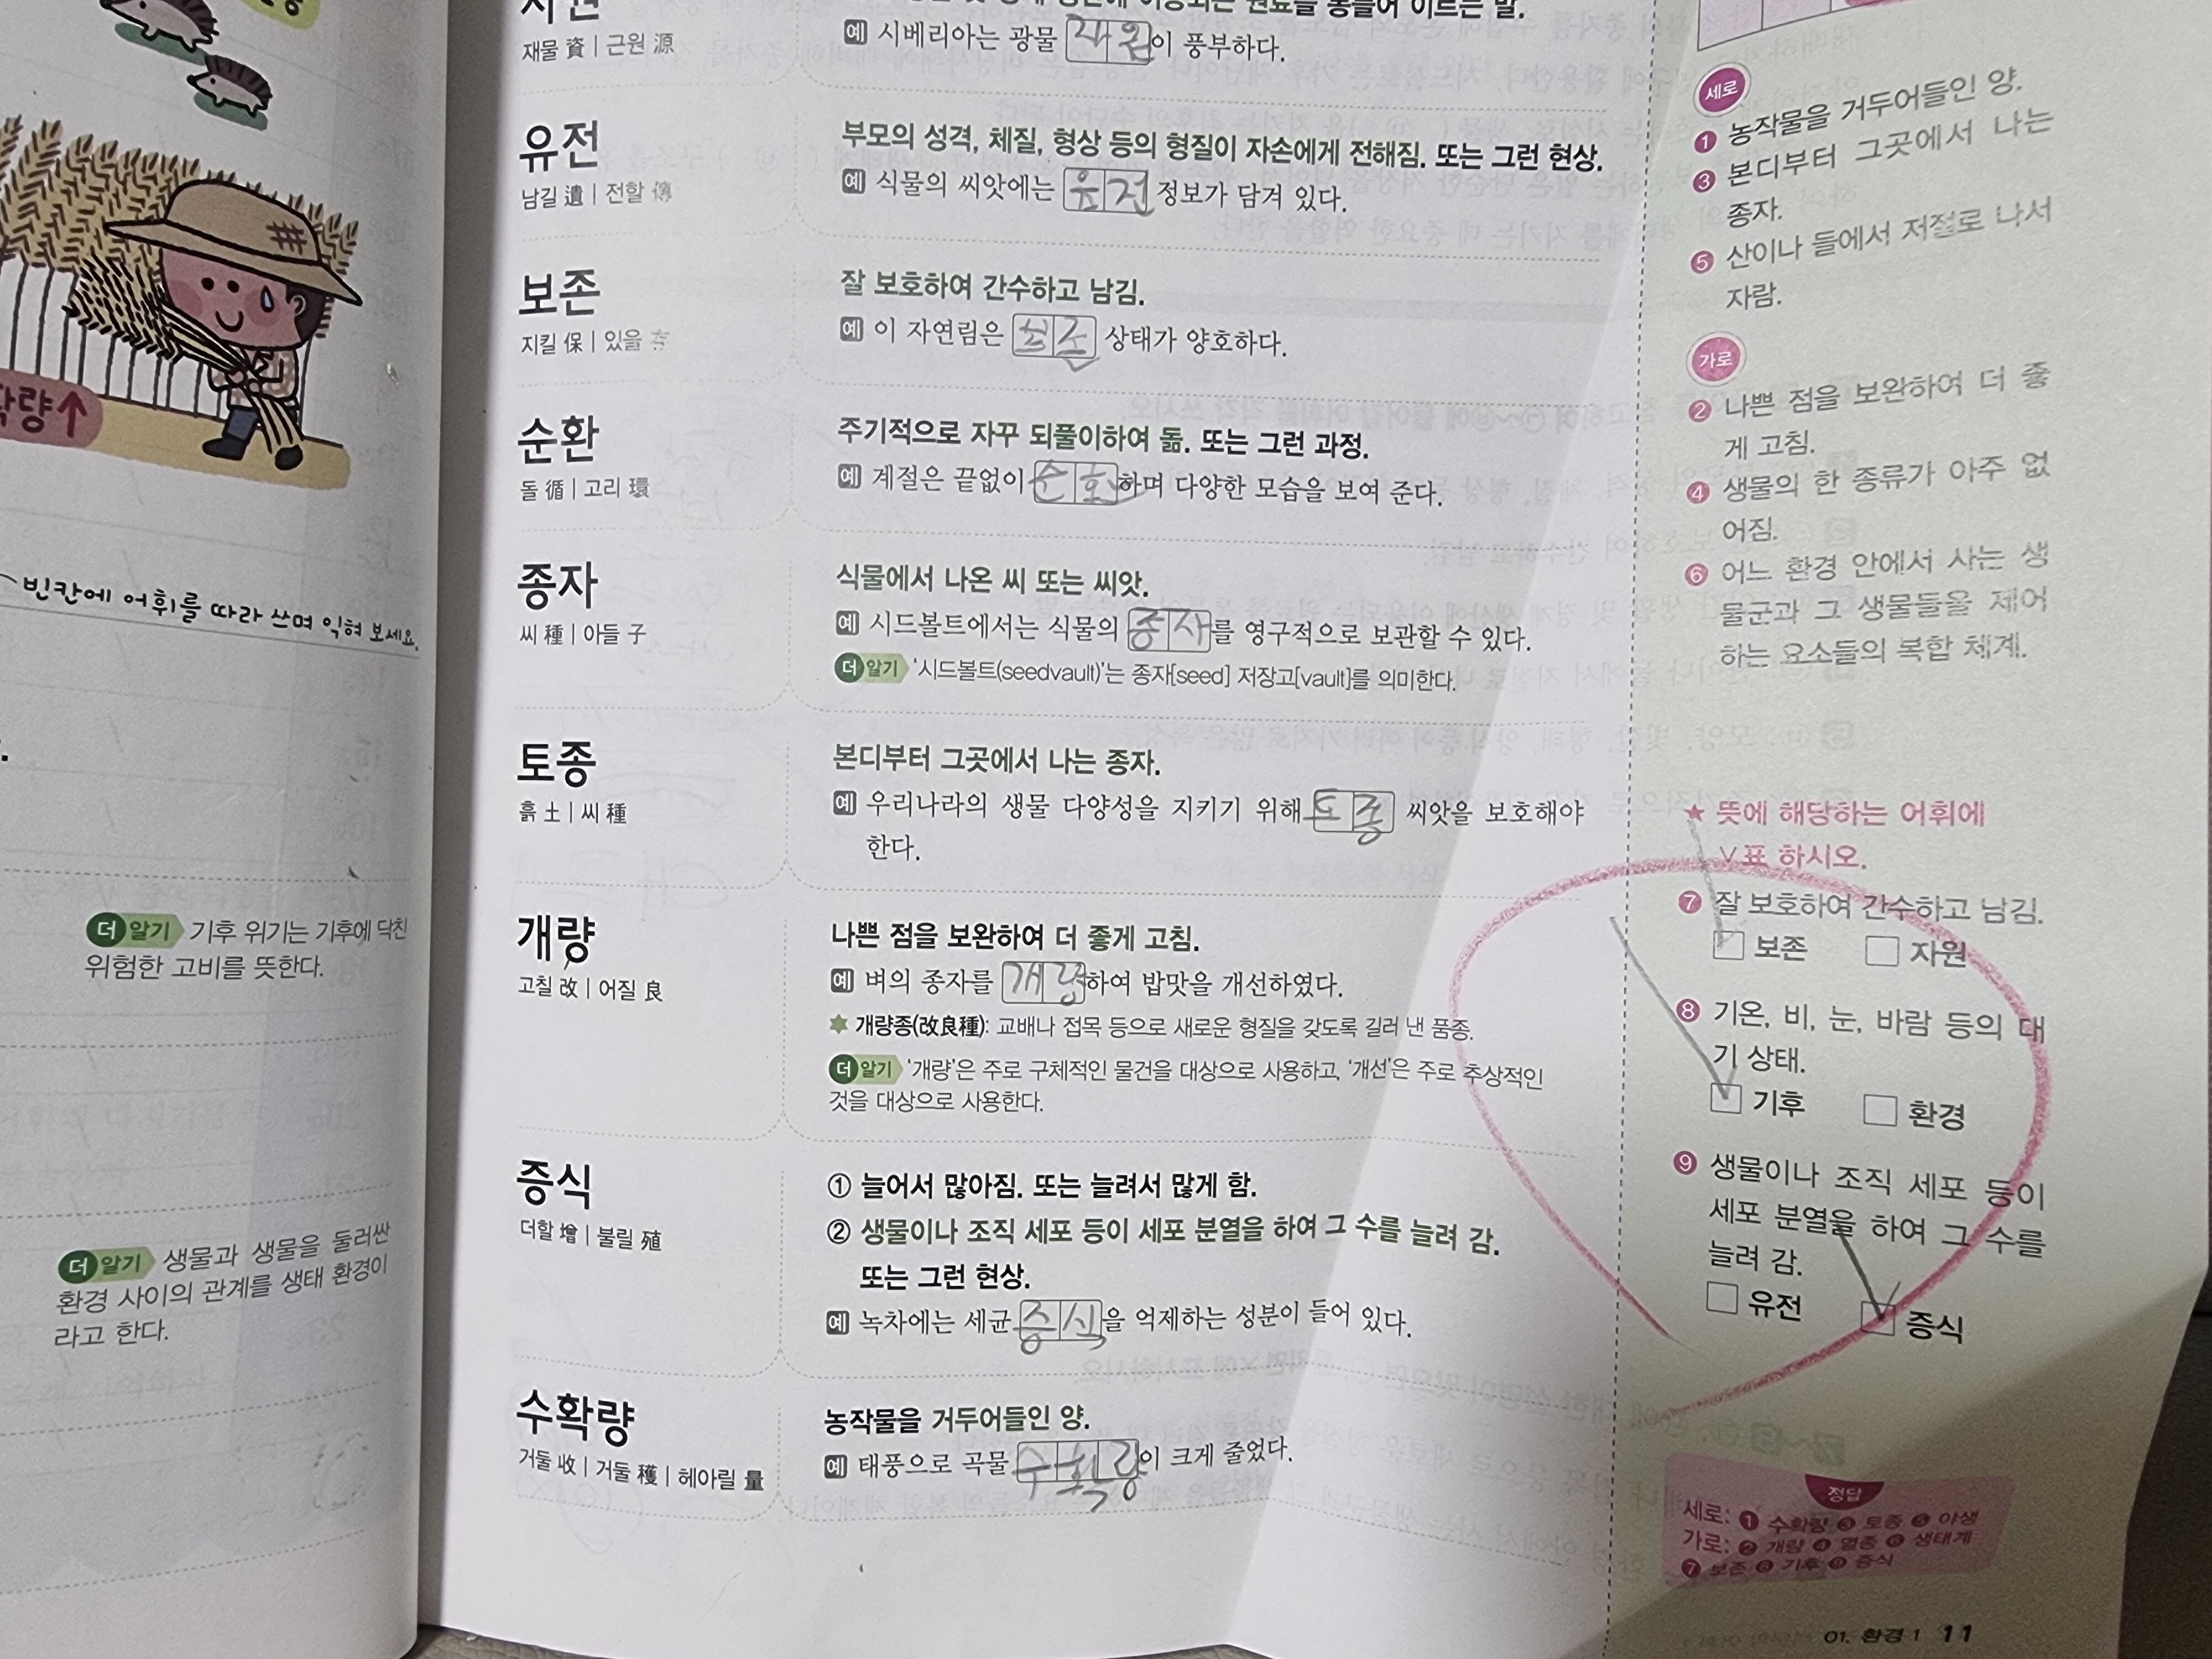 작량↑
빈칸에 어휘를 따라 쓰며 익혀 보세요.
더 알기 기후 위기는 기후에 닥친
위험한 고비를 뜻한다.
더 알기 생물과 생물을 둘러싼
환경 사이의 관계를 생태 환경이
라고 한다.
자원
재물 資 | 근원 源
이용되는 원료를 통틀어 이르는 말.
예 시베리아는 광물 자원이 풍부하다.
유전
남길 遺 | 전할 傳
부모의 성격, 체질, 형상 등의 형질이 자손에게 전해짐. 또는 그런 현상.
예 식물의 씨앗에는 유전 정보가 담겨 있다.
보존
지킬 保 | 있을 存
잘 보호하여 간수하고 남김.
예 이 자연림은 보존 상태가 양호하다.
순환
돌 循 | 고리 環
주기적으로 자꾸 되풀이하여 돎. 또는 그런 과정.
예 계절은 끝없이 순환하며 다양한 모습을 보여 준다.
종자
씨 種 | 아들 子
식물에서 나온 씨 또는 씨앗.
예 시드볼트에서는 식물의 종자를 영구적으로 보관할 수 있다.
더 알기 '시드볼트(seedvault)'는 종자[seed] 저장고[vault]를 의미한다.
토종
흙 土 | 씨 種
본디부터 그곳에서 나는 종자.
예 우리나라의 생물 다양성을 지키기 위해 토종 씨앗을 보호해야
한다.
개량
고칠 改 | 어질 良
나쁜 점을 보완하여 더 좋게 고침.
예 벼의 종자를 개량하여 밥맛을 개선하였다.
개량종(改良種): 교배나 접목 등으로 새로운 형질을 갖도록 길러 낸 품종.
더 알기 '개량'은 주로 구체적인 물건을 대상으로 사용하고, '개선'은 주로 추상적인
것을 대상으로 사용한다.
증식
더할 增 | 불릴 殖
① 늘어서 많아짐. 또는 늘려서 많게 함.
② 생물이나 조직 세포 등이 세포 분열을 하여 그 수를 늘려 감.
또는 그런 현상.
예 녹차에는 세균 증식을 억제하는 성분이 들어 있다.
수확량
거둘 收 | 거둘 穫 | 헤아릴 量
농작물을 거두어들인 양.
예 태풍으로 곡물 수확량이 크게 줄었다.
세로
❶ 농작물을 거두어들인 양.
❸ 본디부터 그곳에서 나는
종자.
❺ 산이나 들에서 저절로 나서
자람.
가로
❷ 나쁜 점을 보완하여 더 좋
게 고침.
❹ 생물의 한 종류가 아주 없
어짐.
❻ 어느 환경 안에서 사는 생
물군과 그 생물들을 제어
하는 요소들의 복합 체계.
★ 뜻에 해당하는 어휘에
∨표 하시오.
❼ 잘 보호하여 간수하고 남김.
보존 자원
❽ 기온, 비, 눈, 바람 등의 대
기 상태.
기후 환경
❾ 생물이나 조직 세포 등이
세포 분열을 하여 그 수를
늘려 감.
유전 증식
정답
세로: ❶ 수확량 ❸ 토종 ❺ 야생
가로: ❷ 개량 ❹ 멸종 ❻ 생태계
❼ 보존 ❽ 기후 ❾ 증식
01. 환경 1 11